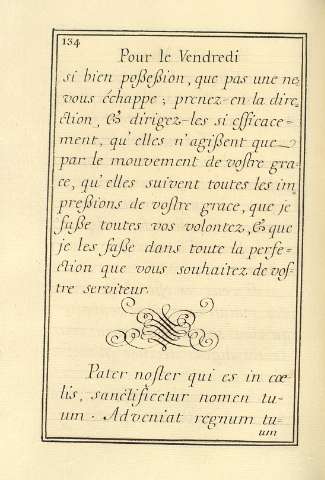 134
Pour le Vendredi
si bien poßeßion, que pas une ne
vous échappe ; prenez-en la dire-
ction, & dirigez-les si efficace-
ment, qu'elles n'agißent que
par le mouvement de vostre gra-
ce, qu'elles suivent toutes les im
preßions de vostre grace, que je
faße toutes vos volontez, & que
je les faße dans toute la perfe-
ction que vous souhaitez de vos-
tre serviteur.
Pater noster qui es in cœ
lis, sanctificetur nomen tu-
um . Adveniat regnum tu-
um